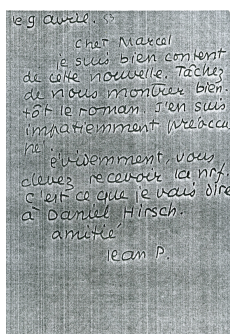 le 9 avril. 53
cher Marcel
je suis bien content
de cette nouvelle. Tâchez
de nous montrer bien-
tôt le roman. J'en suis
impatiemment préoccu
pé!
évidemment, vous
devez recevoir la nrf.
c'est ce que je vais dire
à Daniel Hirsch.
amitié
Jean P.